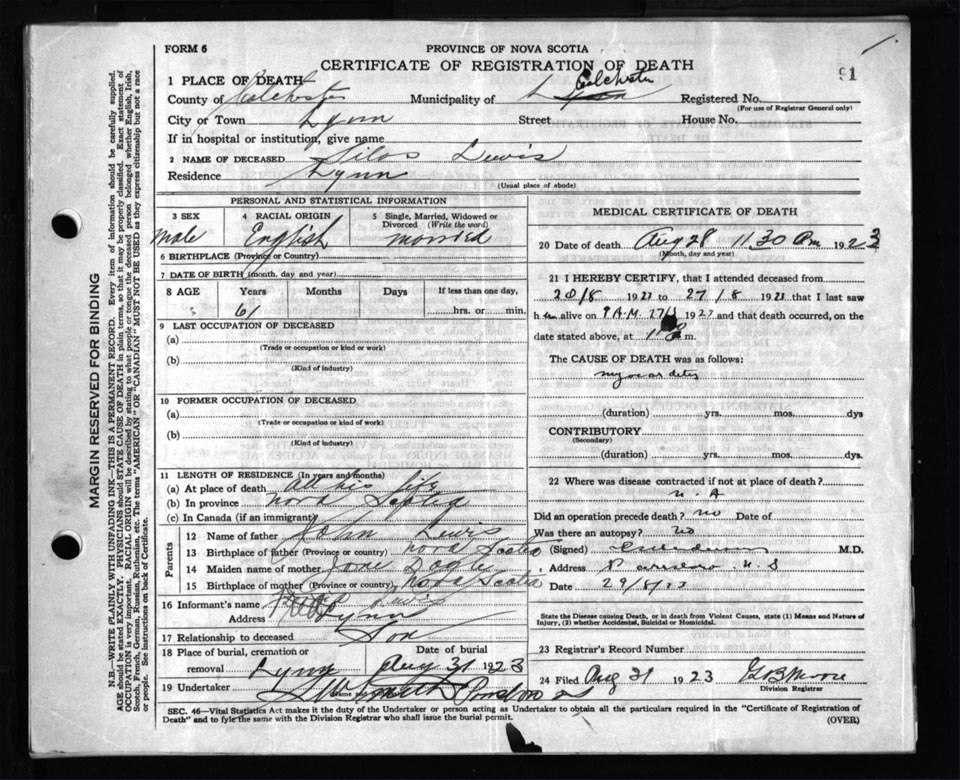 FORM 6
PROVINCE OF NOVA SCOTIA
CERTIFICATE OF REGISTRATION OF DEATH
91
1 PLACE OF DEATH
County of Colchester Municipality of Colchester Registered No.
(For use of Registrar General only)
City or Town Lynn Street House No.
If in hospital or institution, give name
2 NAME OF DECEASED Silas Lewis
Residence Lynn
(Usual place of abode)
PERSONAL AND STATISTICAL INFORMATION
3 SEX 4 RACIAL ORIGIN 5 Single, Married, Widowed or Divorced (Write the word)
Male English Married
6 BIRTHPLACE (Province or Country)
7 DATE OF BIRTH (month, day and year)
8 AGE Years Months Days If less than one day,
61 hrs. or min.
9 LAST OCCUPATION OF DECEASED
(a)
(Trade or occupation or kind or work)
(b)
(Kind of industry)
10 FORMER OCCUPATION OF DECEASED
(a)
(Trade or occupation or kind of work)
(b)
(Kind of industry)
11 LENGTH OF RESIDENCE (In years and months)
(a) At place of death All his life
(b) In province Nova Scotia
(c) In Canada (if an immigrant)
Parents
12 Name of father John Lewis
13 Birthplace of father (Province or country) Nova Scotia
14 Maiden name of mother Jane
15 Birthplace of mother (Province or country) Nova Scotia
16 Informant's name Lewis
Address Lynn
17 Relationship to deceased Son
18 Place of burial, cremation or Date of burial
removal Lynn Aug 31 1923
19 Undertaker
MEDICAL CERTIFICATE OF DEATH
20 Date of death Aug 28 11.30 1923
(Month, day and year)
21 I HEREBY CERTIFY, that I attended deceased from
20/8 1923 to 27/8 1923 that I last saw
h im alive on 27/8 1923 and that death occurred, on the
date stated above, at m.
The CAUSE OF DEATH was as follows:
myocarditis
(duration) yrs. mos. dys
CONTRIBUTORY
(Secondary)
(duration) yrs. mos. dys.
22 Where was disease contracted if not at place of death?
Did an operation precede death? no Date of
Was there an autopsy? no
(Signed) M.D.
Address Parrsboro N.S
Date 29/8/23
State the Disease causing Death, or in death from Violent Causes, state (1) Means and Nature of
Injury, (2) whether Accidental, Suicidal or Homicidal.
23 Registrar's Record Number
24 Filed Aug 31 1923 Moore
Division Registrar
SEC. 46—Vital Statistics Act makes it the duty of the Undertaker or person acting as Undertaker to obtain all the particulars required in the "Certificate of Registration of
Death" and to fyle the same with the Division Registrar who shall issue the burial permit.
(OVER)
MARGIN RESERVED FOR BINDING
N.B.—WRITE PLAINLY WITH UNFADING INK—THIS IS A PERMANENT RECORD. Every item of information should be carefully supplied.
AGE should be stated EXACTLY. PHYSICIANS should STATE CAUSE OF DEATH in plain terms, so that it may be properly classified. Exact statement of
OCCUPATION is very important. RACIAL ORIGIN will be described by stating to what people or tongue the deceased person belonged whether English, Irish,
Scotch, French, German, Russian, Ruthenian, etc. The terms "AMERICAN" or "CANADIAN" MUST NOT BE USED as they express citizenship but not a race
or people. See instructions on back of Certificate.